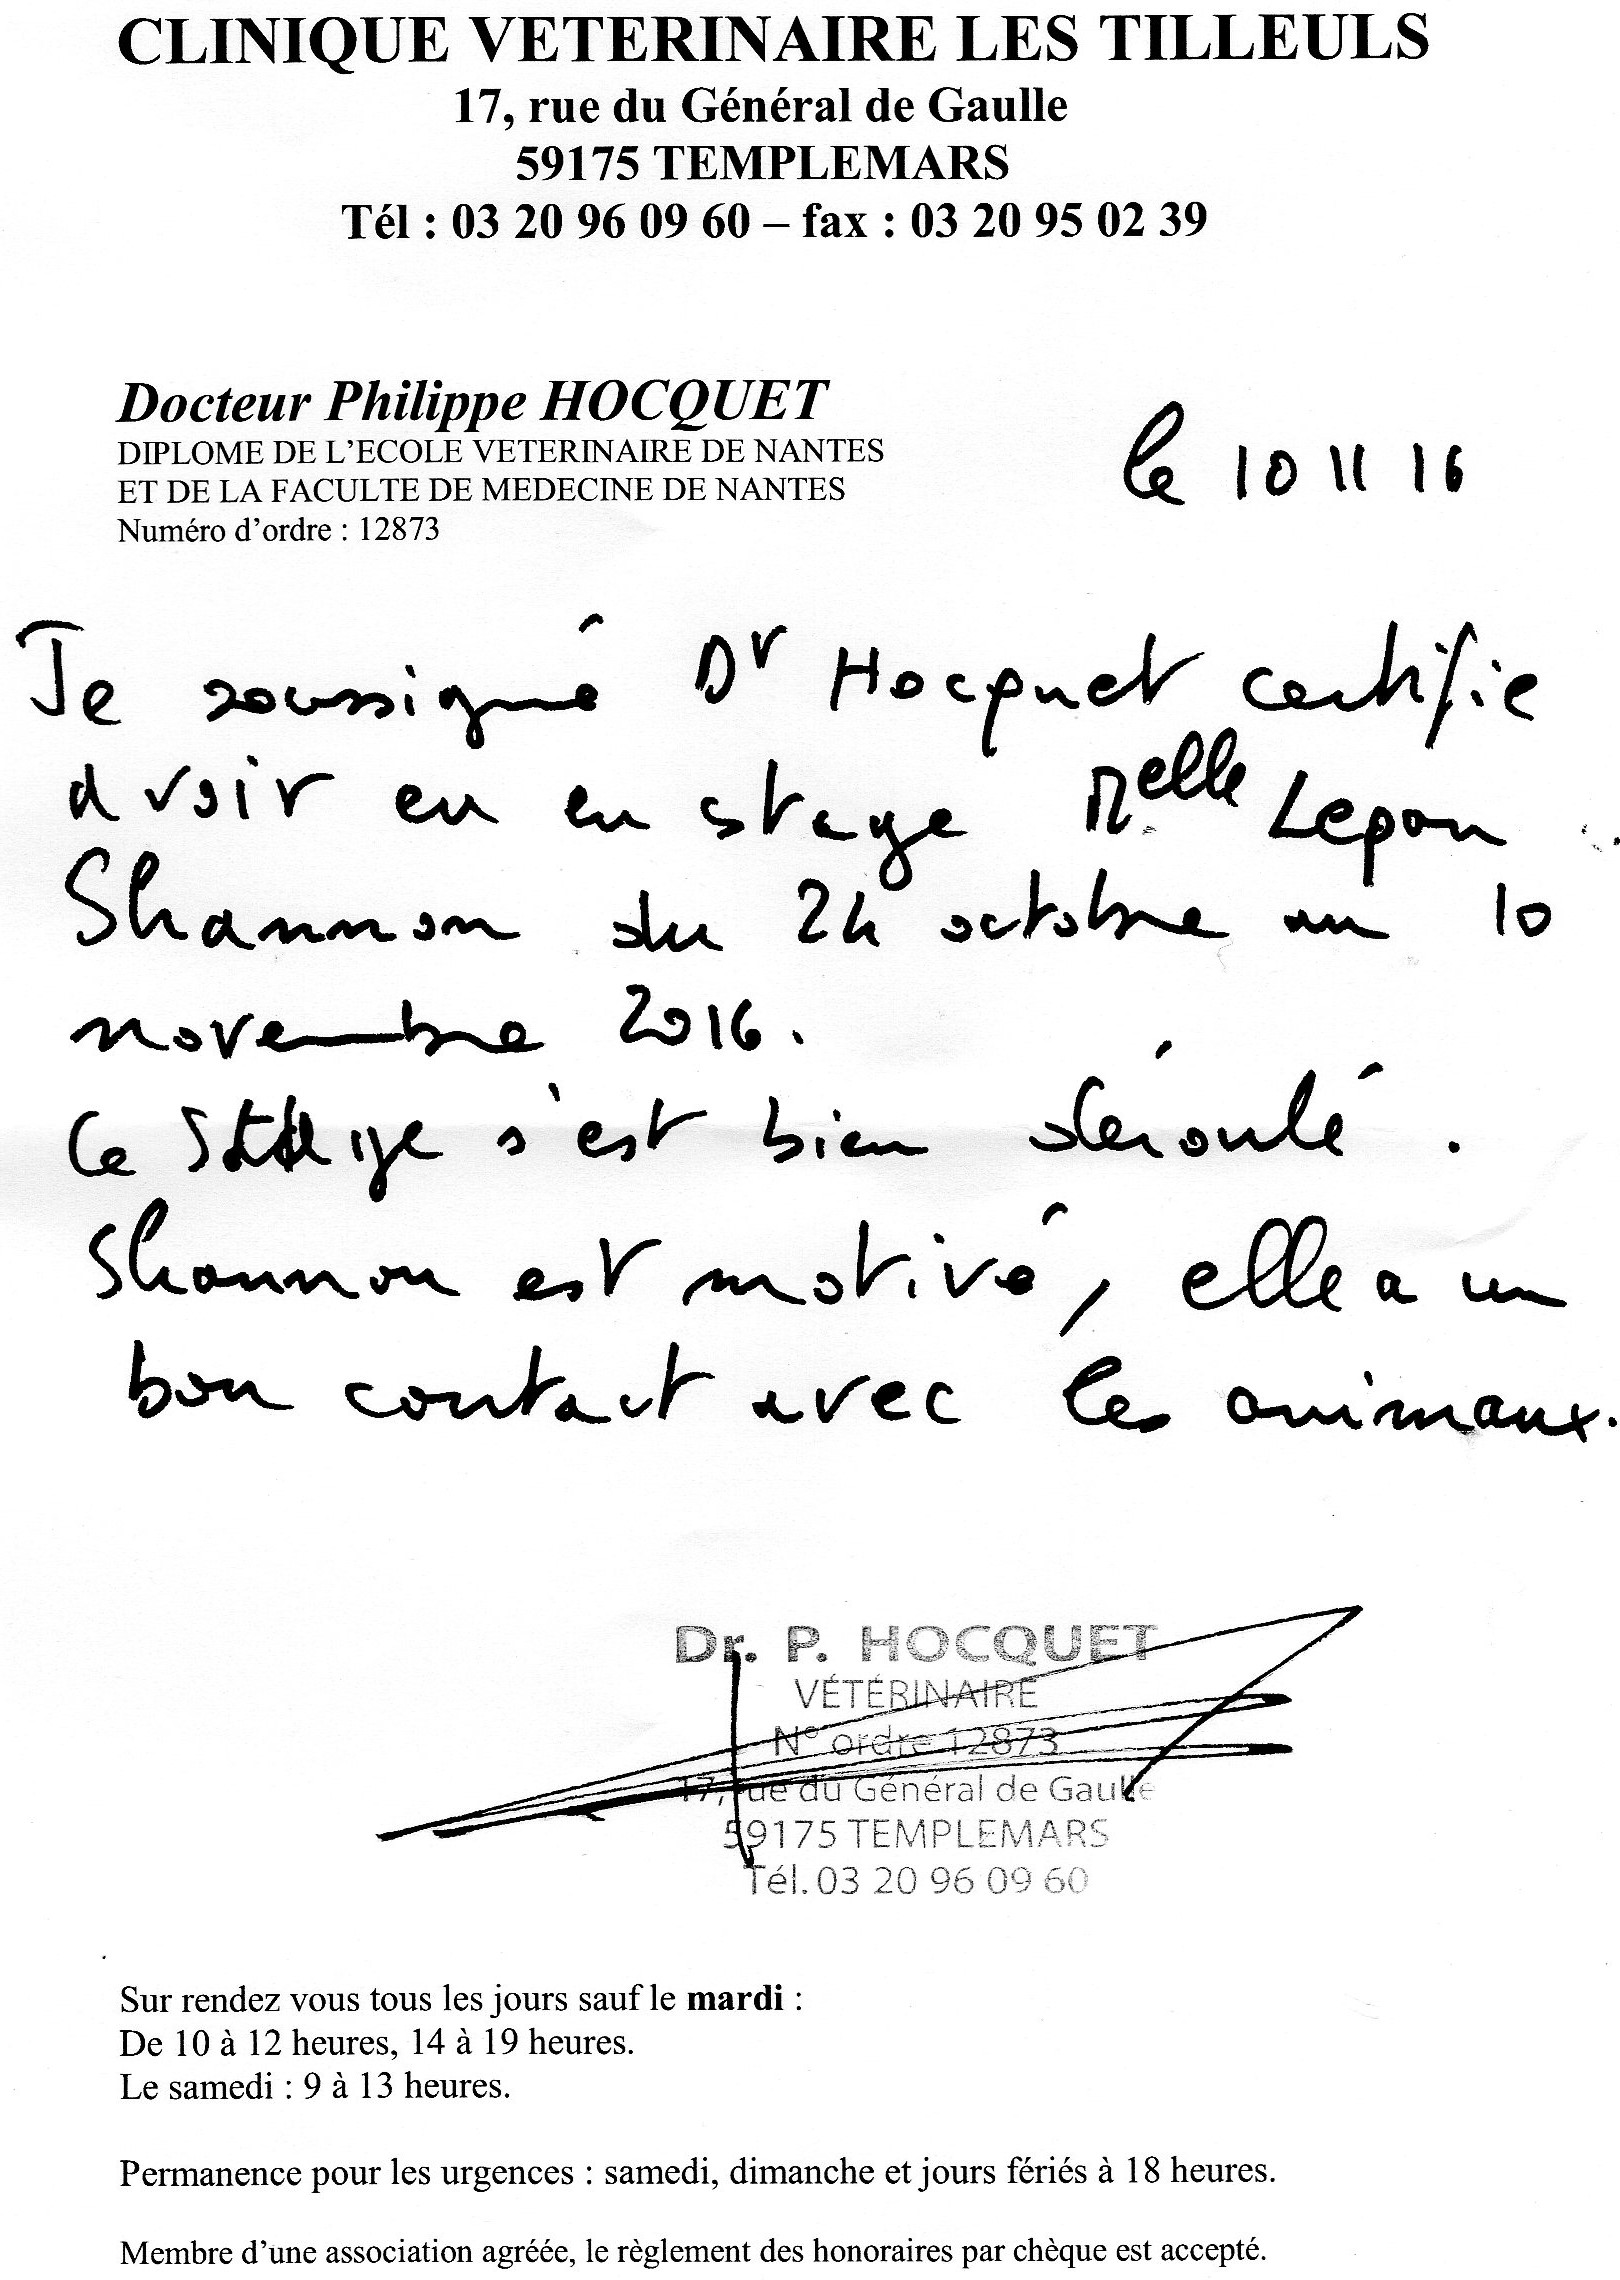 CLINIQUE VETERINAIRE LES TILLEULS
17, rue du Général de Gaulle
59175 TEMPLEMARS
Tél : 03 20 96 09 60 – fax : 03 20 95 02 39
Docteur Philippe HOCQUET
DIPLOME DE L'ECOLE VETERINAIRE DE NANTES
ET DE LA FACULTE DE MEDECINE DE NANTES
Numéro d'ordre : 12873
le 10 11 16
Je soussigné Dr Hocquet certifie
avoir eu en stage Melle Lepan
Shannon du 24 octobre au 10
novembre 2016.
Ce stage s'est bien déroulé.
Shannon est motivé, elle a un
bon contact avec les animaux.
Dr. P. HOCQUET
VÉTÉRINAIRE
N° ordre 12873
17, rue du Général de Gaulle
59175 TEMPLEMARS
Tél. 03 20 96 09 60
Sur rendez vous tous les jours sauf le mardi :
De 10 à 12 heures, 14 à 19 heures.
Le samedi : 9 à 13 heures.
Permanence pour les urgences : samedi, dimanche et jours fériés à 18 heures.
Membre d'une association agréée, le règlement des honoraires par chèque est accepté.